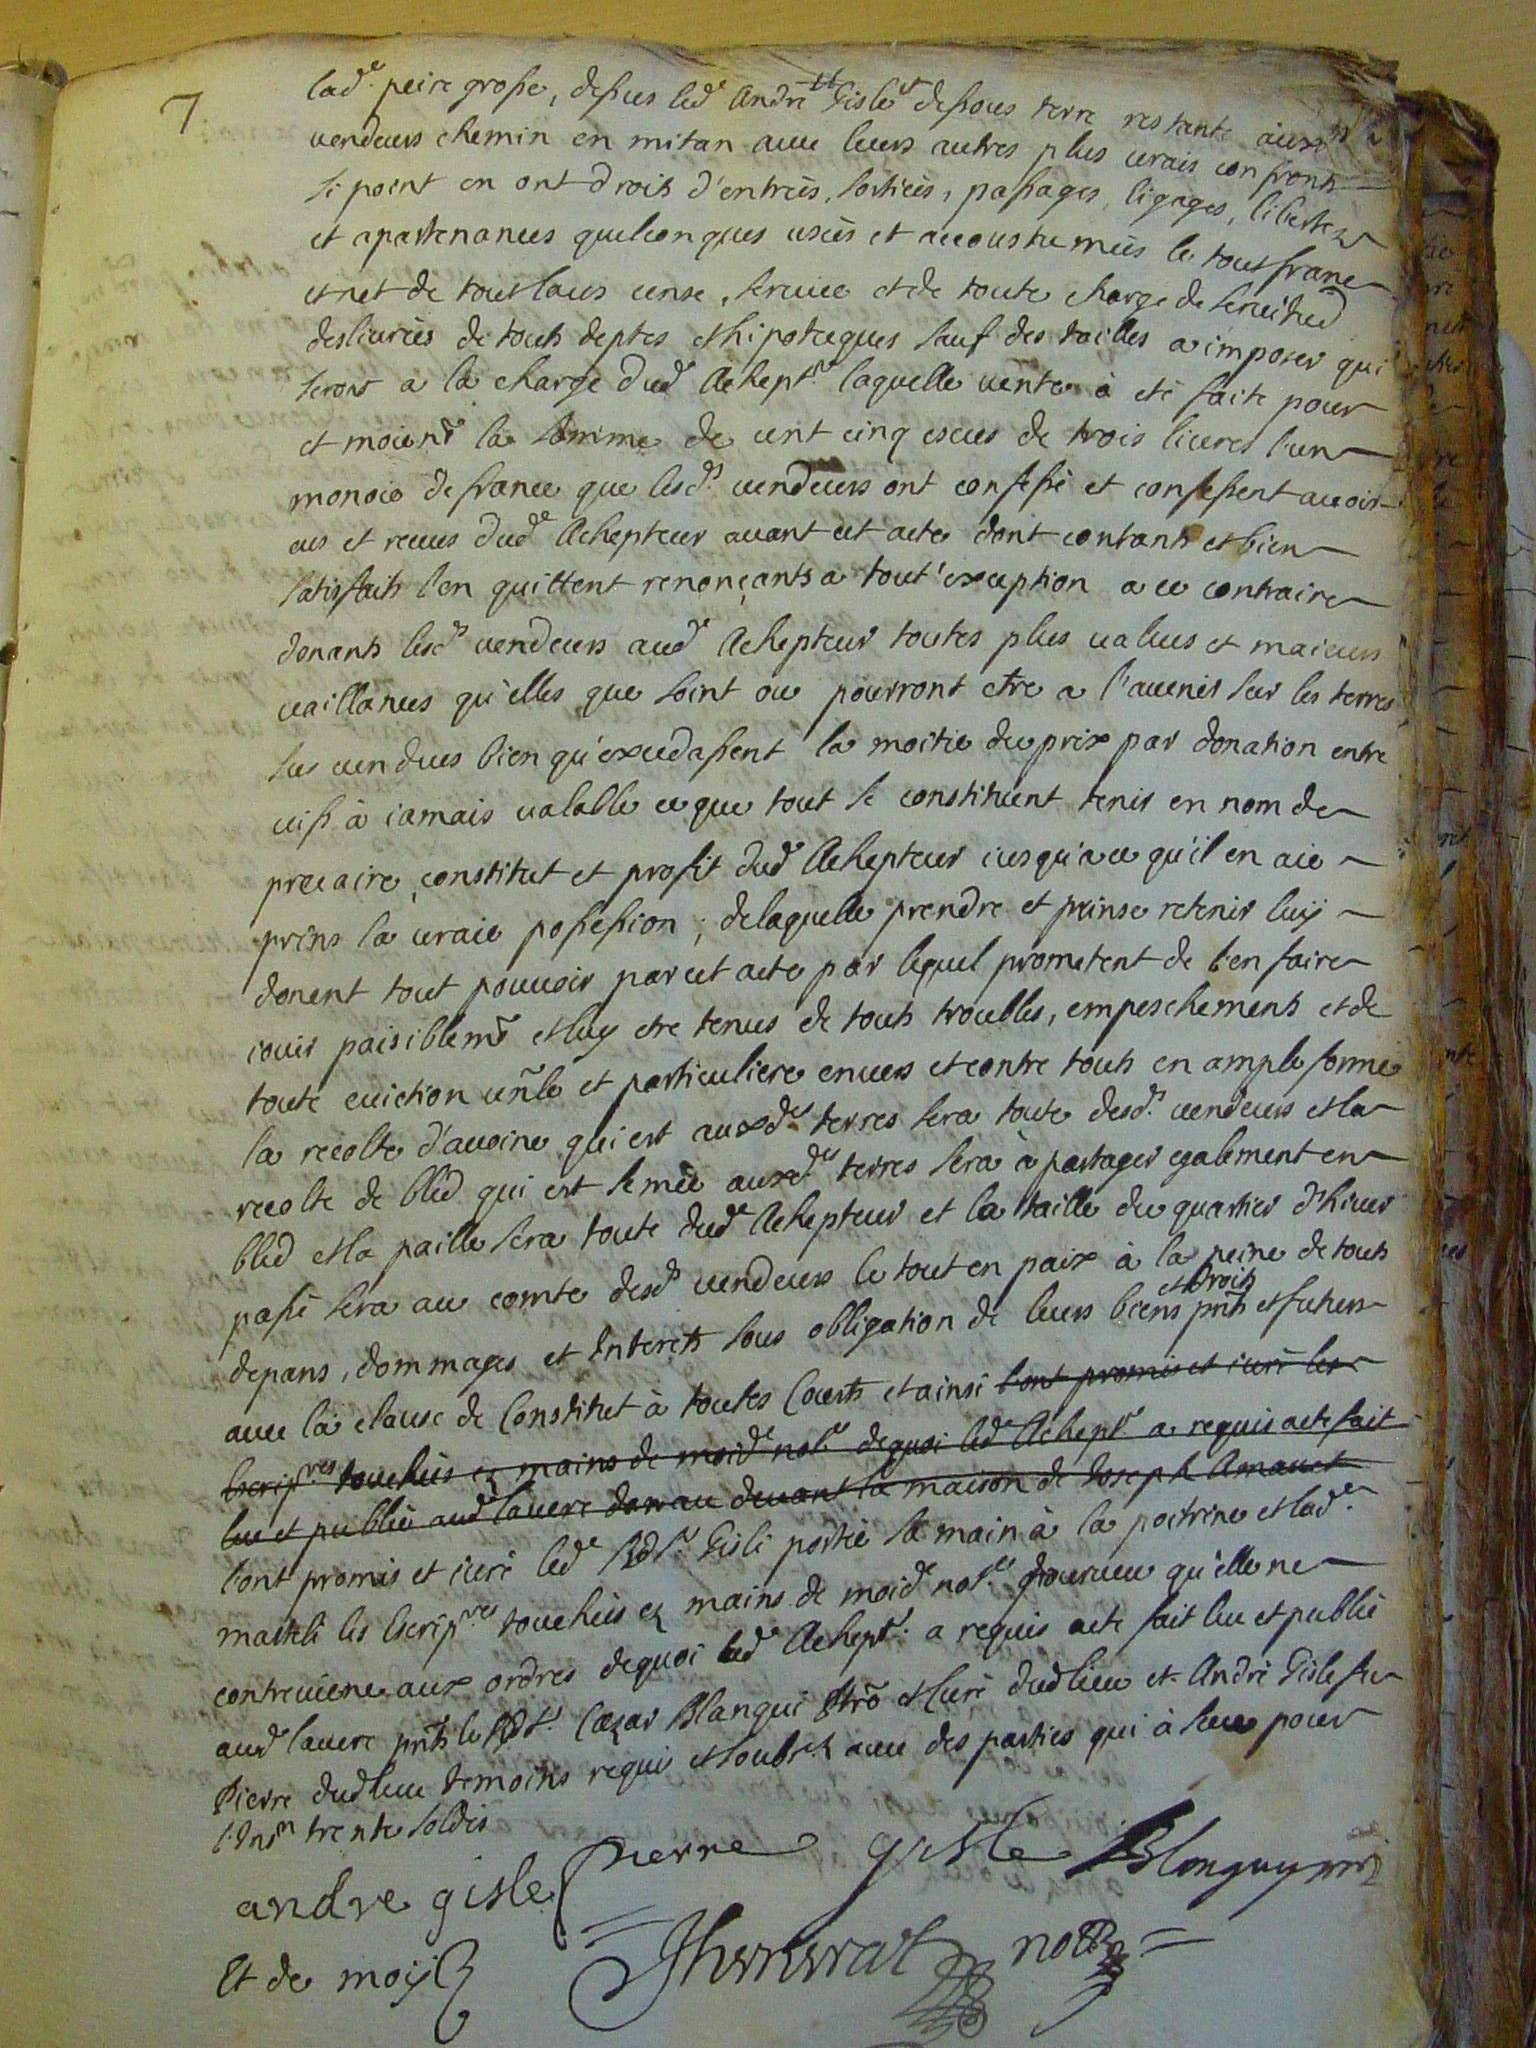 7
lad.e peire grosse, dessus led.e André Gisle et dessous terre restante aux d.s
vendeurs chemin en mitan avec leurs autres plus vrais confronts
si point en ont droits d'entrées, sorties, passages, ligages, libertez
et apartenances quelconques usées et accoustumées le tout franc
et net de tout laus cense, service et de toute charge de servitud
deslivrées de touts deptes et hipoteques sauf des tailles a imposer qui
seront a la charge dud.e Achept.r laquelle vente à eté faite pour
et moien.t la somme de cent cinq escus de trois livres l'un
monoie de france que lesd.s vendeurs ont confessé et confessent avoir
eus et receus dud.e Achepteur avant cet acte dont contants et bien
satisfaits l'en quittent renonçants a tout'exception a ce contraire
donants lesd.s vendeurs aud.e Achepteur toutes plus values et maieurs
vaillances qu'elles que soint ou pourront etre a l'avenir sur les terres
sus vendues bien qu'excedassent la moitié du prix par donation entre
vifs à iamais valable ce que tout se constituent tenir en nom de
precaire, constitut et profit dud.e Achepteur iusqu'a ce qu'il en aie
prins la vraie possession, de laquelle prendre et prinse retenir luy
donent tout pouvoir par cet acte par lequel prometent de l'en faire
iouir paisiblem.t et luy etre tenus de touts troubles, empeschements et de
toute eviction un̄le et particuliere envers et contre touts en ample forme
la recolte d'avoine qui est auxd.es terres sera toute desd.s vendeurs et la
recolte de bled qui est semée auxd.es terres sera à partager egalement en
bled et la paille sera toute dud.e Achepteur et la taille du quartier d'hiver
passé sera au comte desd.s vendeurs le tout en paix à la peine de touts
depans, dommages et Interets sous obligation de leurs biens et droits pn̄ts et futurs
avec la clause de Constitut à toutes Courts et ainsi l'ont promis et iuré les
Escrip.res touchées ez mains de moid.e not.e dequoi led.e Achept.r a requis acte fait
leu et publié aud.e lavere devant la maison de Joseph Arnaud
l'ont promis et iuré led.e Gisli portée sa main à la poitrine et lad.e
marteli les Escrip.res touchées ez mains de moid.e not.e pourveu qu'elle ne
contreviene aux ordres dequoi led.e Achept.r a requis acte fait leu et publié
aud.e lavere pn̄ts le Cæzar Blanqui p̄tre et curé dud lieu et André Gisle feu
Pierre dud lieu temoins requis et soub.ez avec des parties qui à sceu pour
l'Ins.n trente soldis
andre gisle Pierre gisle Blanquy
Et de moy not.e